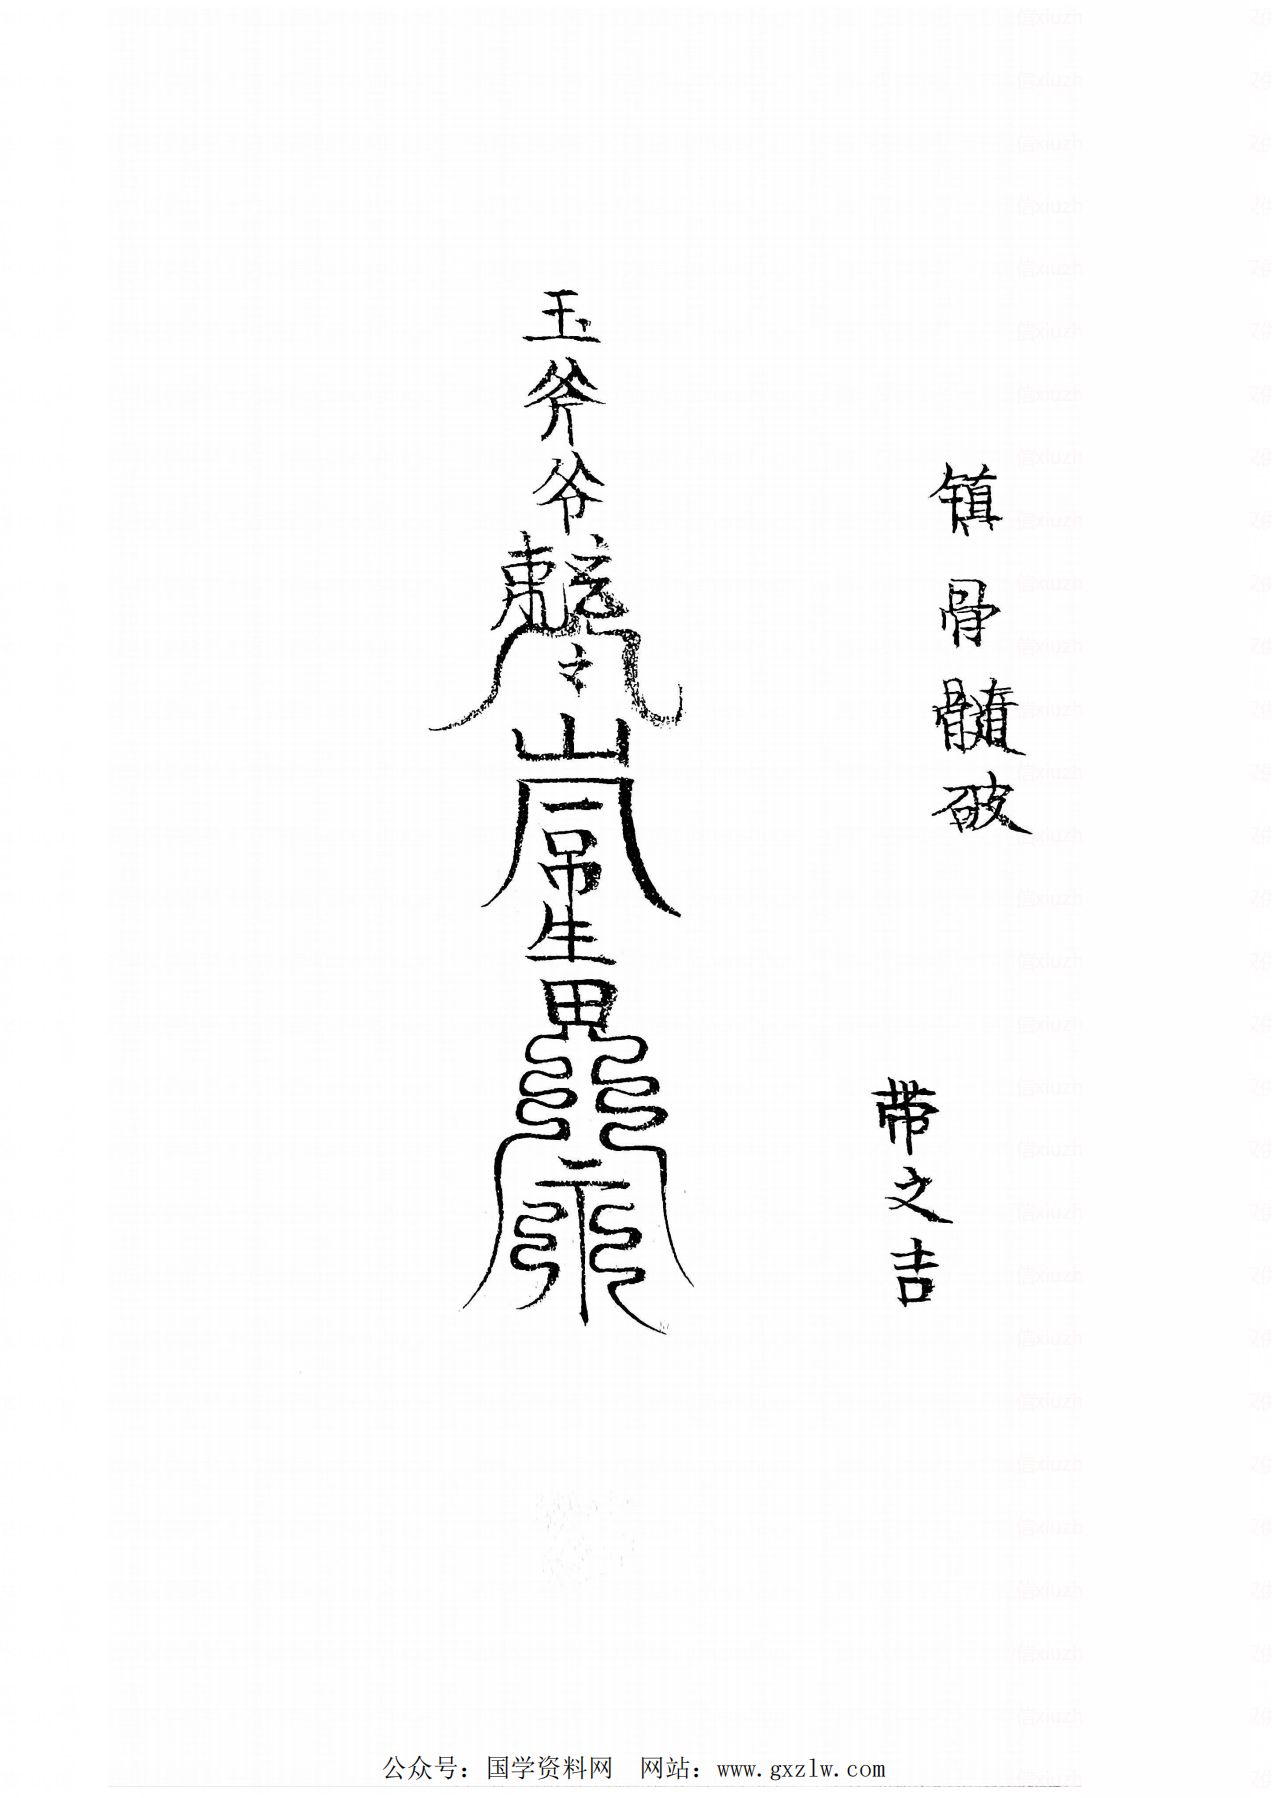 镇骨髓破
带之吉
玉
斧
爷
之
山
一
吊
生
田
公众号：国学资料网　网站：www.gxzlw.com